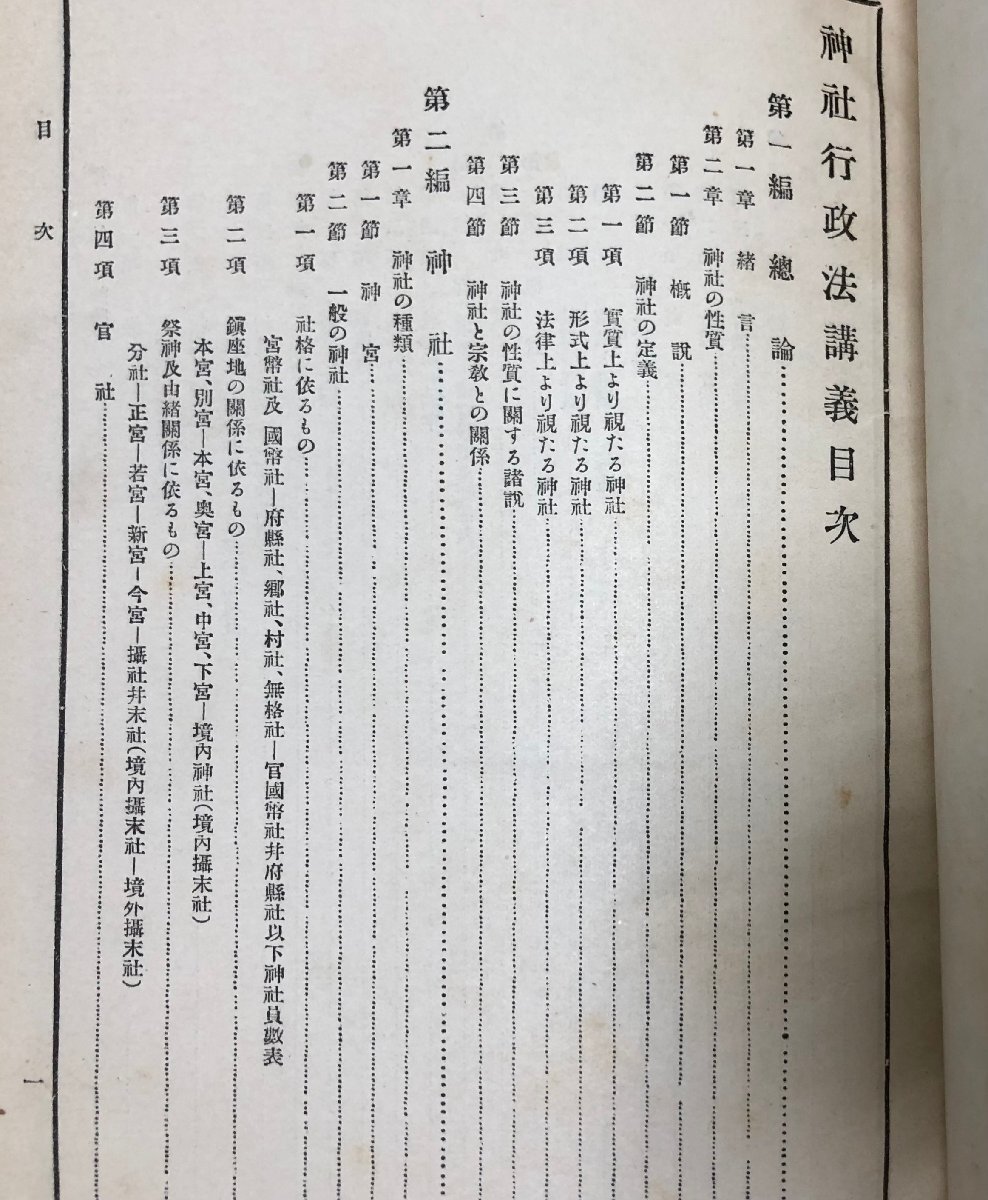 神社行政法講義目次
第一編 總論
第一章 緒言
第二章 神社の性質
第一節 槪說
第二節 神社の定義
第一項 實質上より視たる神社
第二項 形式上より視たる神社
第三項 法律上より視たる神社
第三節 神社の性質に關する諸說
第四節 神社と宗教との關係
第二編 神社
第一章 神社の種類
第一節 神宮
第二節 一般の神社
第一項 社格に依るもの
官幣社及國幣社―府縣社、鄕社、村社、無格社―官國幣社幷府縣社以下神社員數表
第二項 鎭座地の關係に依るもの
本宮、別宮―本宮、奧宮―上宮、中宮、下宮―境內神社(境內攝末社)
第三項 祭神及由緖關係に依るもの
分社―正宮―若宮―新宮―今宮―攝社幷末社(境內攝末社―境外攝末社)
第四項 官社
目次
一